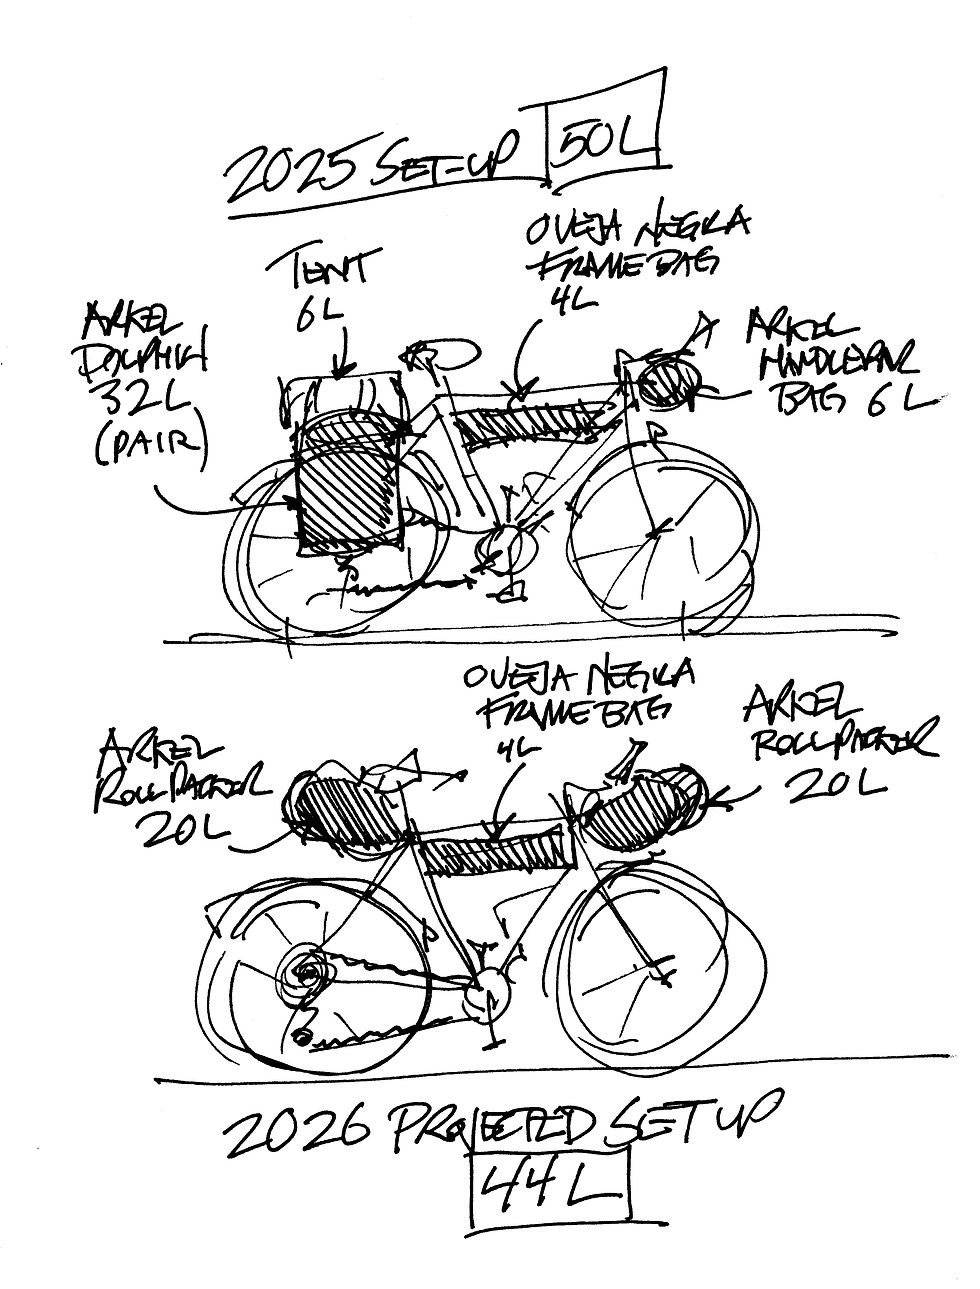 2025 SET-UP 50L
TENT
6L
OVEJA NEGRA
FRAME BAG
4L
ARKEL
DOLPHIN
32L
(PAIR)
ARKEL
HANDLEBAR
BAG 6L
OVEJA NEGRA
FRAME BAG
4L
ARKEL
ROLLPACKER
20L
ARKEL
ROLLPACKER
20L
2026 PROJECTED SET UP
44L